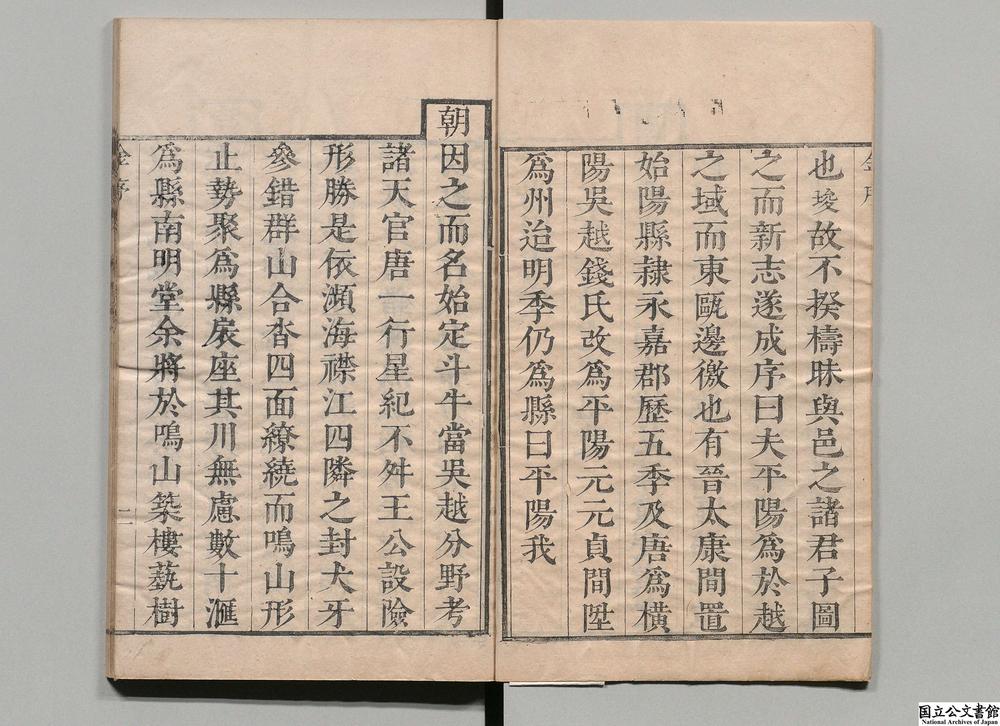 也埈故不揆檮昧與邑之諸君子圖
之而新志遂成序曰夫平陽爲於越
之域而東甌邊徼也有晉太康間置
始陽縣隷永嘉郡歷五季及唐爲橫
陽吳越錢氏改爲平陽元元貞間陞
爲州迨明季仍爲縣曰平陽我
朝因之而名始定斗牛當吳越分野考
諸天官唐一行星紀不舛王公設險
形勝是依瀕海襟江四隣之封犬牙
參錯群山合沓四面繚繞而鳴山形
止勢聚爲縣扆座其川無慮數十滙
爲縣南明堂余將於鳴山築樓蓺樹
金序
二
国立公文書館
National Archives of Japan